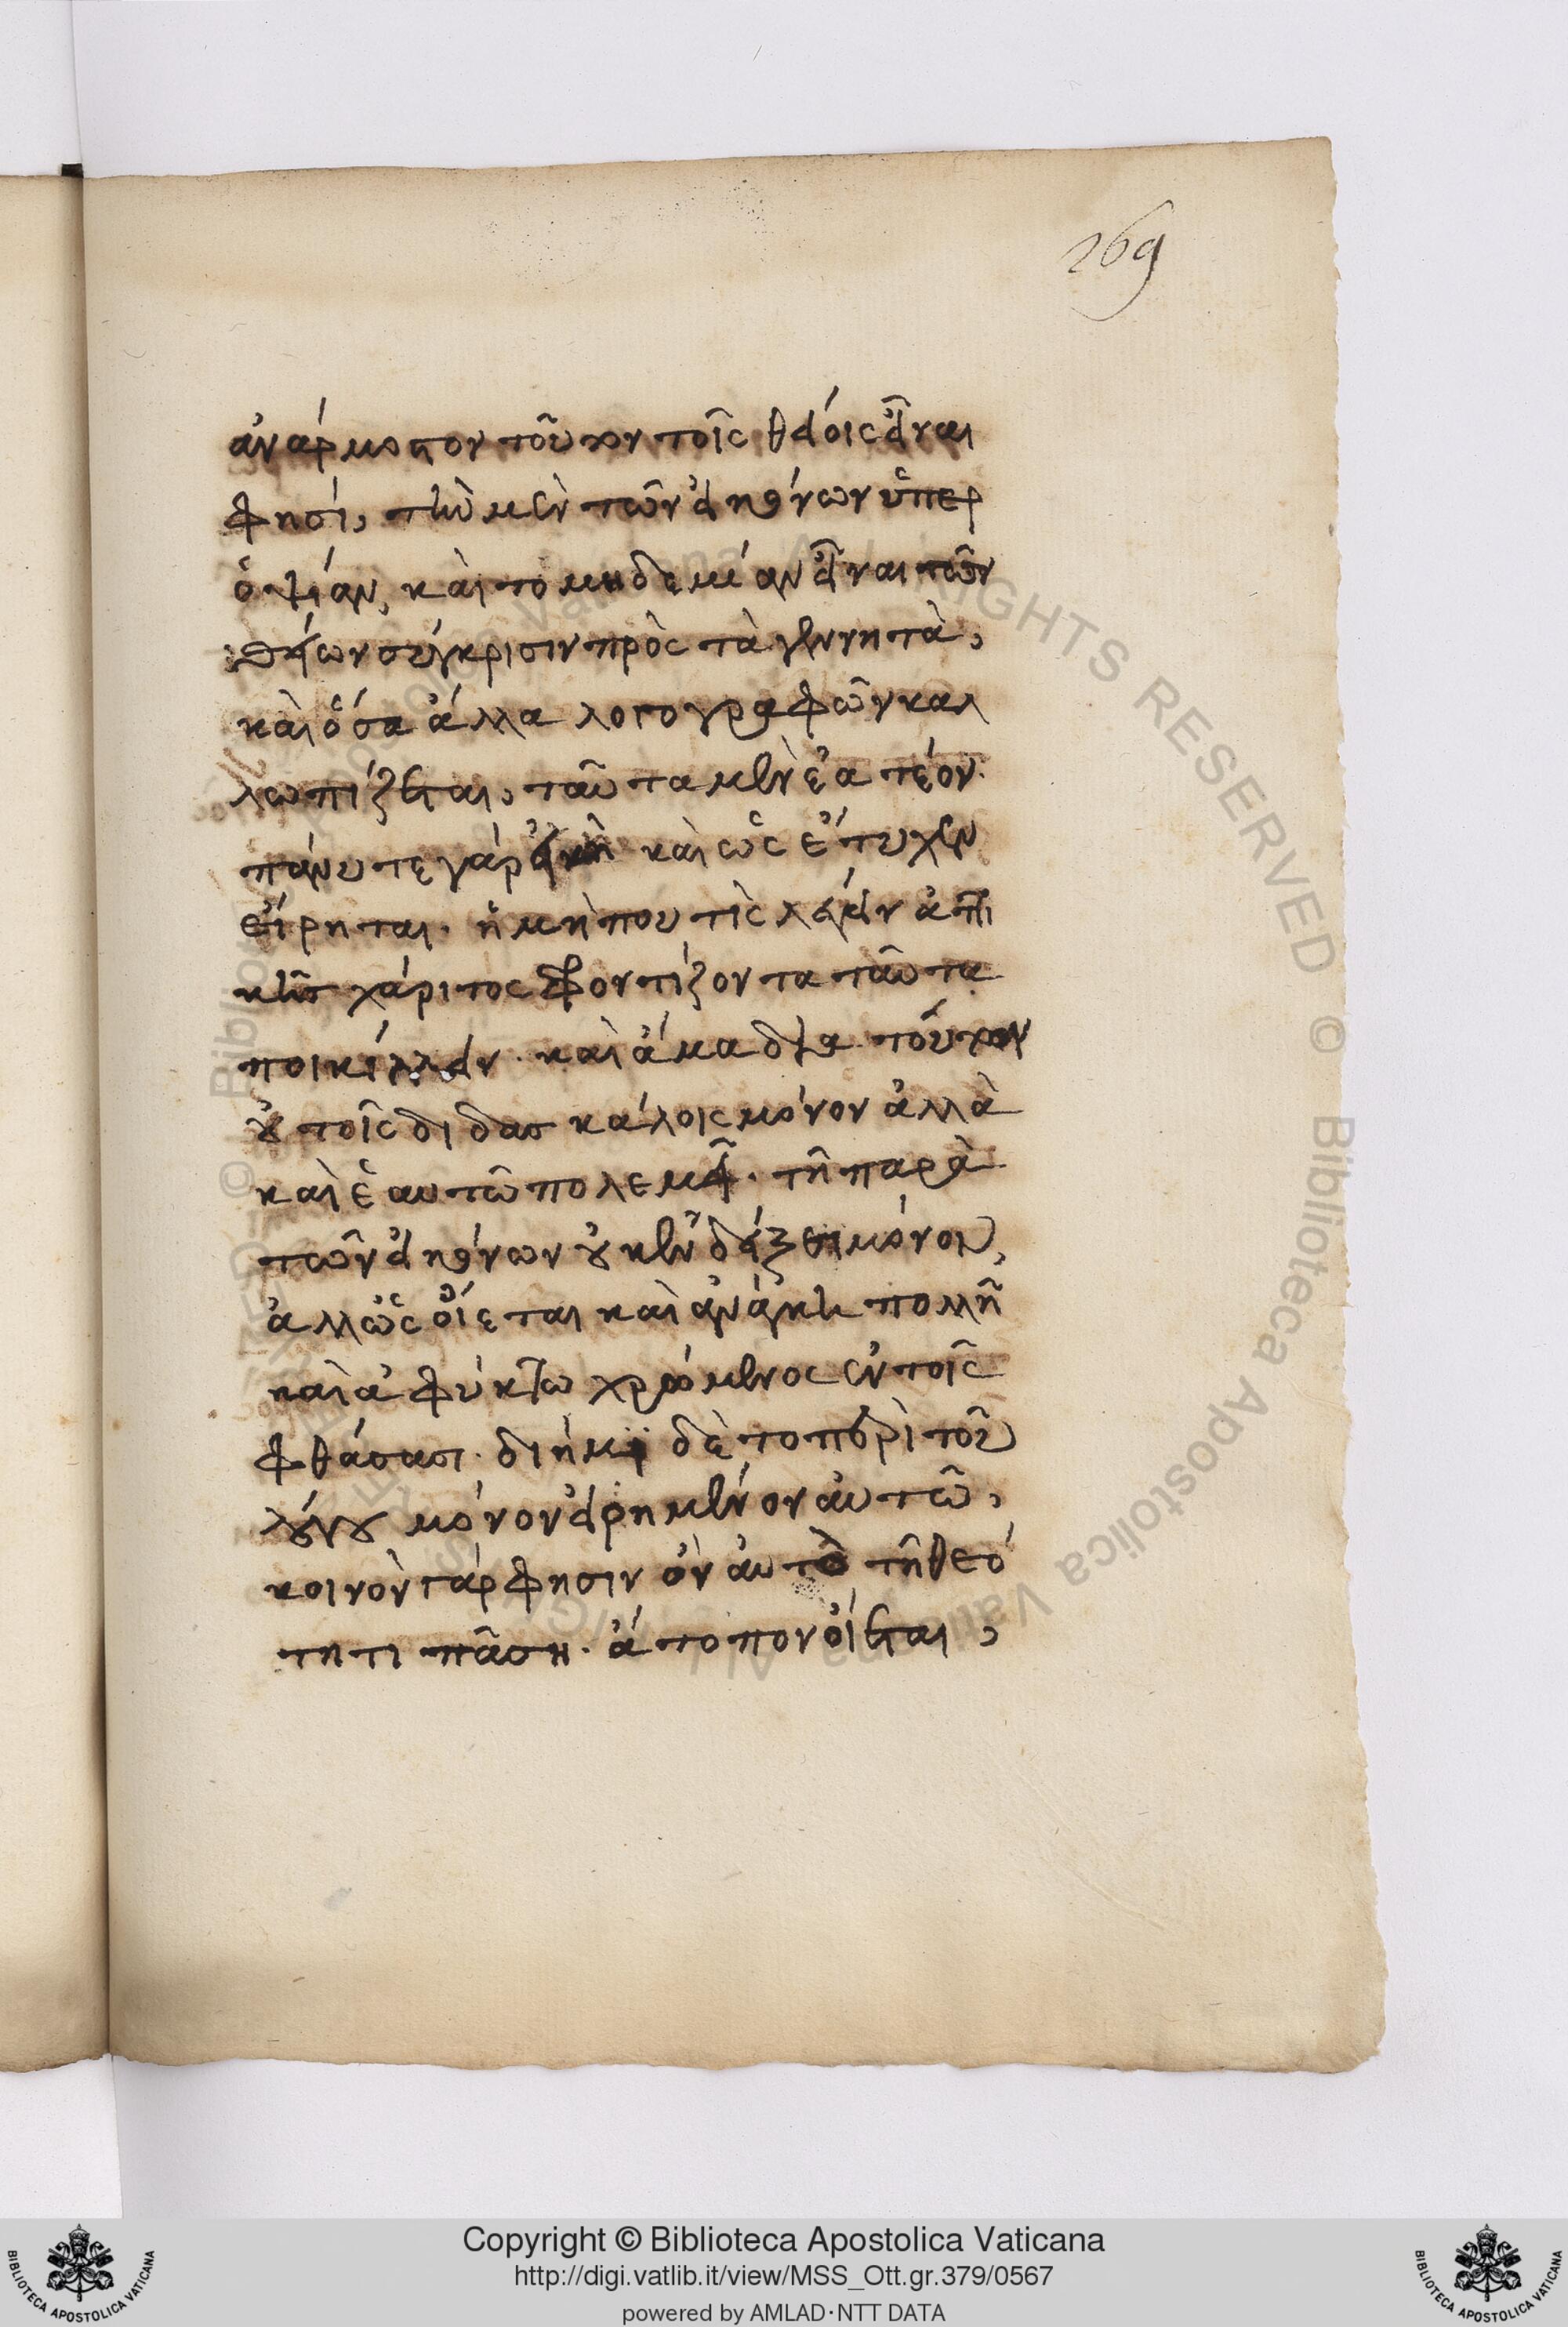 269
ἀνάρμοστον τοῦτον τοῖς θείοις εἶναι
φησί, τὴν μὲν τῶν ἐκείνων ὑπερ
οψίαν, καὶ τὸ μηδεμίαν εἶναι τῶν
θείων σύγκρισιν πρὸς τὰ γεννητὰ,
καὶ ὅσα ἄλλα λογογραφῶν καλ
λωπίζεται, ταῦτα μὲν ἐατέον.
πάνυ τε γὰρ εἰκῆ καὶ ὡς ἔτυχεν
εἴρηται. ἢ μή που τις λέγειν ἀττι
κῆς χάριτος φροντίζοντα ταῦτα
ποικίλλειν. καὶ ἅμα διὰ τούτων
οὐ τοῖς διδασκάλοις μόνον ἀλλὰ
καὶ ἑαυτῶ πολεμεῖ. τῆ παρὰ
τῶν ἐκείνων οὐκ ἐνδείξει μόνον,
ἀλλ' ὡς οἴεται καὶ ἀνάγκη πολλῆ
καὶ ἀφύκτω χρώμενος ἐν τοῖς
φθάσασι. δι' ἡμῶν δὲ τὸ περὶ τοῦ
λόγου μόνον εἰρημένον αὐτῶ,
κοινὸν γάρ φησιν ὂν αὐτὸ τῆ θεό
τητι πάση. ἄτοπον οἴεται,
Copyright © Biblioteca Apostolica Vaticana
http://digi.vatlib.it/view/MSS_Ott.gr.379/0567
powered by AMLAD·NTT DATA
BIBLIOTECA APOSTOLICA VATICANA
BIBLIOTECA APOSTOLICA VATICANA